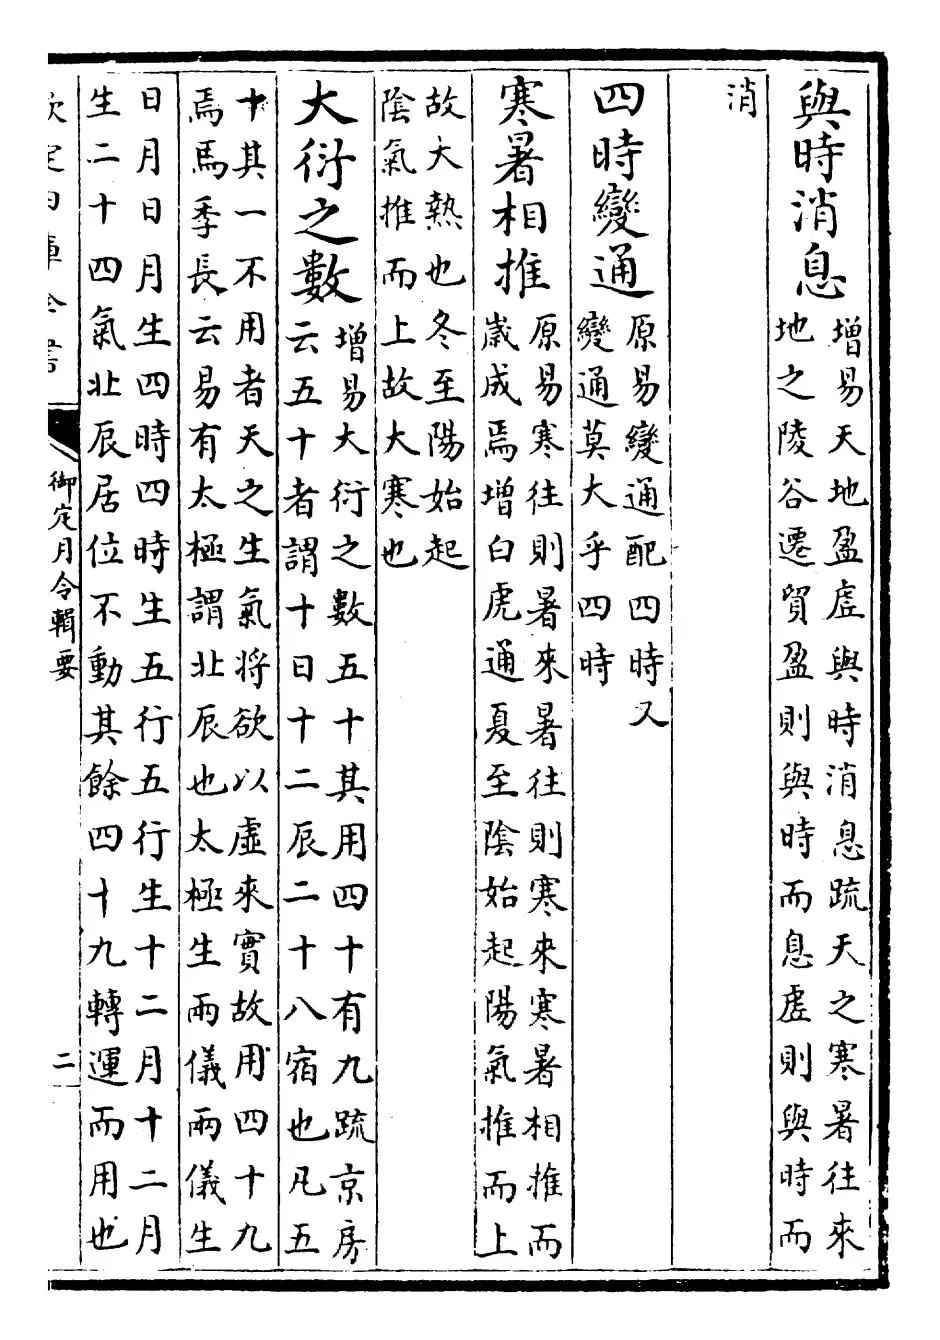 與時消息
增易天地盈虛與時消息疏天之寒暑往來
地之陵谷遷貿盈則與時而息虛則與時而
消
四時變通
原易變通配四時又
變通莫大乎四時
寒暑相推
原易寒往則暑來暑往則寒來寒暑相推而
歲成焉增白虎通夏至陰始起陽氣推而上
故大熱也冬至陽始起
陰氣推而上故大寒也
大衍之數
增易大衍之數五十其用四十有九疏京房
云五十者謂十日十二辰二十八宿也凡五
十其一不用者天之生氣將欲以虛來實故用四十九
焉馬季長云易有太極謂北辰也太極生兩儀兩儀生
日月日月生四時四時生五行五行生十二月十二月
生二十四氣北辰居位不動其餘四十九轉運而用也
欽定四庫全書
御定月令輯要
二